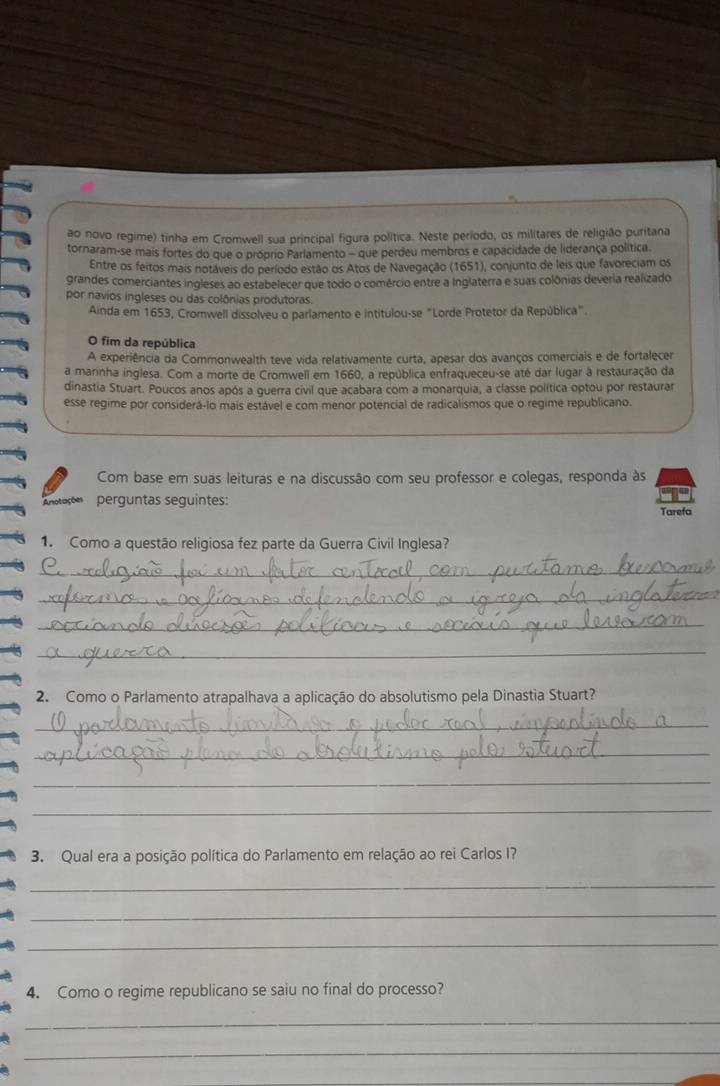 ao novo regime) tinha em Cromwell sua principal figura política. Neste período, os militares de religião puritana
tornaram-se mais fortes do que o próprio Parlamento – que perdeu membros e capacidade de liderança política.
Entre os feitos mais notáveis do período estão os Atos de Navegação (1651), conjunto de leis que favoreciam os
grandes comerciantes ingleses ao estabelecer que todo o comércio entre a Inglaterra e suas colônias deveria realizado
por navios ingleses ou das colônias produtoras.
Ainda em 1653, Cromwell dissolveu o parlamento e intitulou-se "Lorde Protetor da República".
O fim da república
A experiência da Commonwealth teve vida relativamente curta, apesar dos avanços comerciais e de fortalecer
a marinha inglesa. Com a morte de Cromwell em 1660, a república enfraqueceu-se até dar lugar à restauração da
dinastia Stuart. Poucos anos após a guerra civil que acabara com a monarquia, a classe política optou por restaurar
esse regime por considerá-lo mais estável e com menor potencial de radicalismos que o regime republicano.
Com base em suas leituras e na discussão com seu professor e colegas, responda às
Anotações perguntas seguintes:
Tarefa
1. Como a questão religiosa fez parte da Guerra Civil Inglesa?
religiaõ foi um fator central, com puritamos
reforma e defendendo a igreja da inglaterra
direcsões politicas e sociais que levaram
a guerra.
2. Como o Parlamento atrapalhava a aplicação do absolutismo pela Dinastia Stuart?
O parlamento o poder real, impedindo a
aplicação plena do absolutismo pelo stuart.
3. Qual era a posição política do Parlamento em relação ao rei Carlos I?
4. Como o regime republicano se saiu no final do processo?